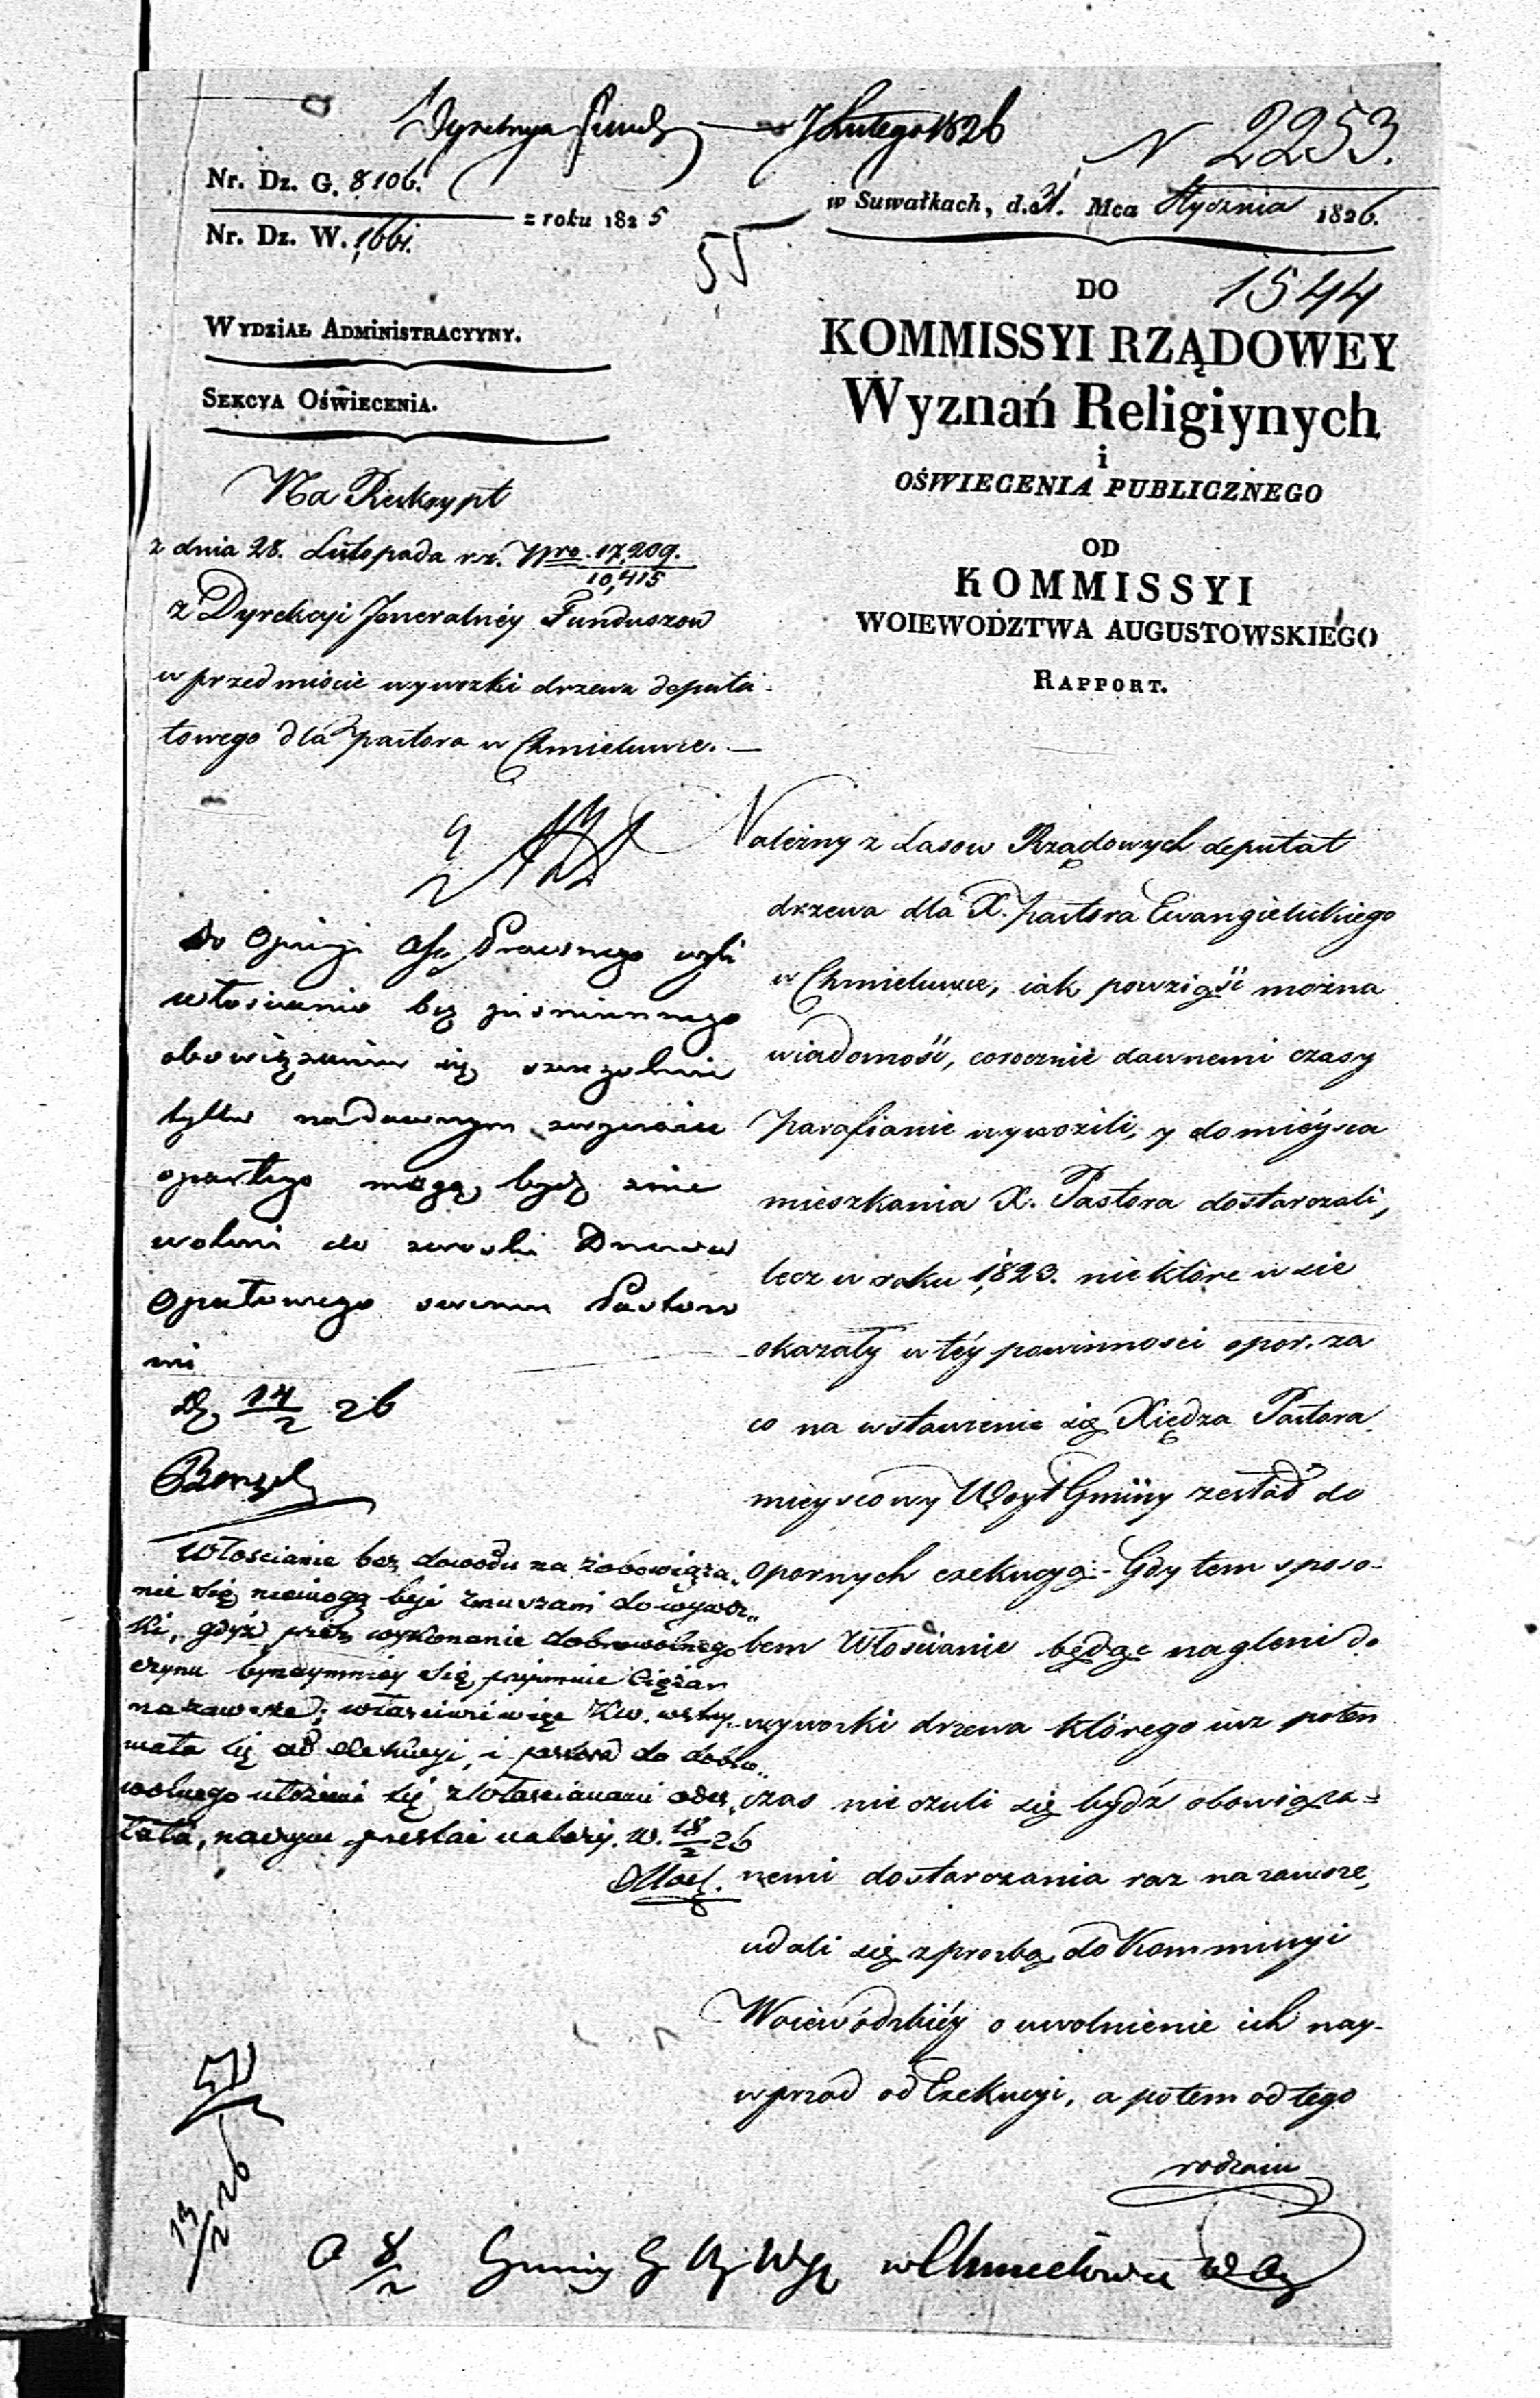 Dyrekcya Fund. 7 Lutego 1826
N 2253.
Nr. Dz. G. 8106.
z roku 1825
Nr. Dz. W. 1661.
55
w Suwałkach, d. 31. Mca Stycznia 1826.
1544
WYDZIAŁ ADMINISTRACYYNY.
SEKCYA OŚWIECENIA.
DO
KOMMISSYI RZĄDOWEY
Wyznań Religiynych
i
OŚWIECENIA PUBLICZNEGO
OD
KOMMISSYI
WOIEWODZTWA AUGUSTOWSKIEGO
RAPPORT.
Na Reskrypt
z dnia 28. Listopada r.z. Nro 17,209.
10,415
z Dyrekcyi Jeneralnéy Funduszow
w przedmiocie wywozki drzewa deputa-
towego dla pastora w Chmielowie. —
do Opinji Prawnego czyli
włościanie bez piśmiennego
obowiązania się szczególnie
tylko na dawnym zwyczaiu
opartego mogą bydź znie
woleni do zwozki Drzewa
Opałowego swemu Pastoro
wi
14/2 26
Włoscianie bez dowodu na zobowiąza„
nie się niemogą byc zmuszani do wywoz„
ki, gdyż przez wykonanie dobrowolnego
czynu bynaymniey się przyimuie ciężar
na zawsze; właściwie więc K.W. wstrzy„
mała się od exekucyi, i pastora do dobro„
wolnego ułożenia się z Włoscianami odes„
łała, na czym przestać należy. W. 18/2 26
Należny z Lasow Rządowych deputat
drzewa dla X. pastora Ewangielickiego
w Chmielowie, iak powziąść można
wiadomość, corocznie dawnemi czasy
parafianie wywozili, y do mieysca
mieszkania X. Pastora dostarczali,
lecz w roku 1823. niektóre wsie
okazały w téy powinnosci opor. za
co na wstawienie się Xiędza Pastora
mieyscowy Woyt Gminy zesłał do
opornych exekucyą. - Gdy tem sposo-
bem Włoscianie będąc nagleni do
wywozki drzewa którego iuz poten
czas nie czuli się bydź obowiąza-
nemi dostarczania raz na zawsze,
udali się z prozbą do Kommissyi
Woiewódzkiéy o uwolnienie ich nay-
wprzod od Exekucyi, a potem od tego
rodzaiu
13/2 26
8/2 Gminy w Chmielowie